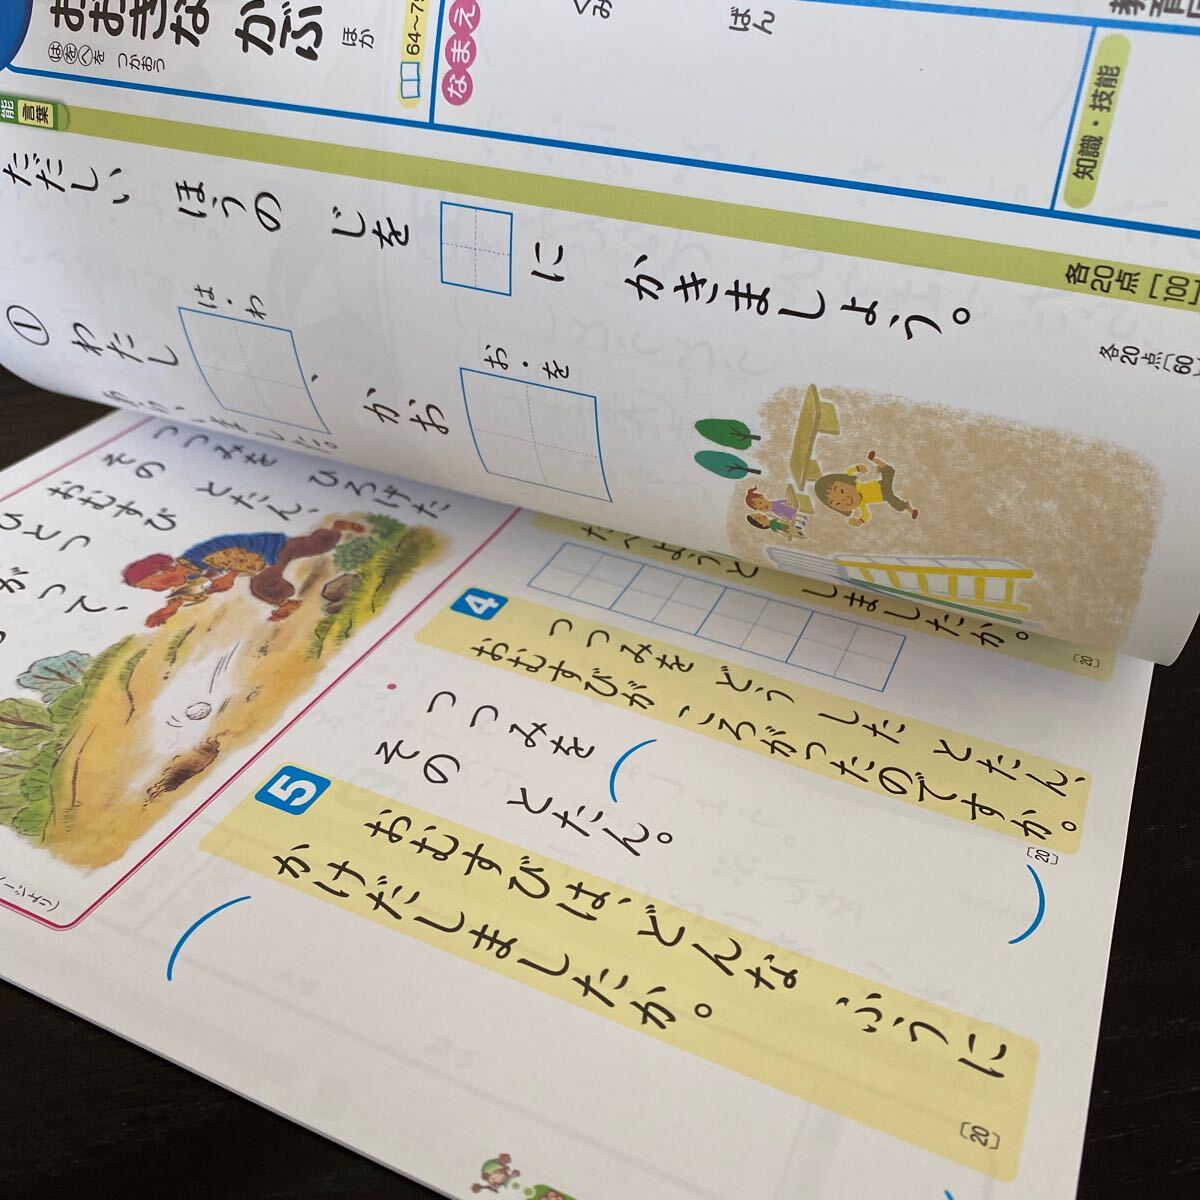 おおきな かぶ ほか
はをへを つかおう
64~7
なまえ
くみ
ばん
知識・技能
言葉
各20点[100
ただしい ほうの じを □に かきましょう。
各20点[60
①
わたし
は・わ
、かお
お・を
つつみを ひろげた
その とだん、
おむすび
ひとつ
がって、
たべようと しましたか。
[20]
4
つつみを どう した とたん、
おむすびが ころがったのですか。
[20]
つつみを
その とたん。
5
おむすびは、どんな ふうに
かけだしましたか。
[20]